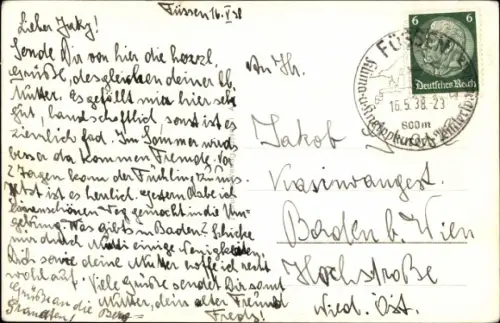 Füssen 16. V 38
Lieber Jaky!
Sende Dir von hier die herzl.
Grüße, desgleichen deiner lb.
Mutter. Es gefällt mir hier sehr
gut, landschaftlich sonst ist es
ziemlich fad. Im Sommer wirds
besser da kommen Fremde. Vor
2 Tagen kam der Frühling zu uns.
Jetzt ist es herrlich. Gestern habe ich
einen schönen Weg gemacht in die Um-
gebung. Was gibts in Baden? Schicke
mir durch Mutti einige Wenigkeiten.
Dich sowie deine Mutter hoffe ich recht
wohlauf. Viele Grüße sendet Dir samt
Mutter, dein alter Freund
Fredy!
Grüße an die Berg-
An Hr.
Jakob
Baden b. Wien
Hochstraße
Nied. Öst.
6 6
Deutsches Reich
FÜSSEN
16.5.38.23
800m